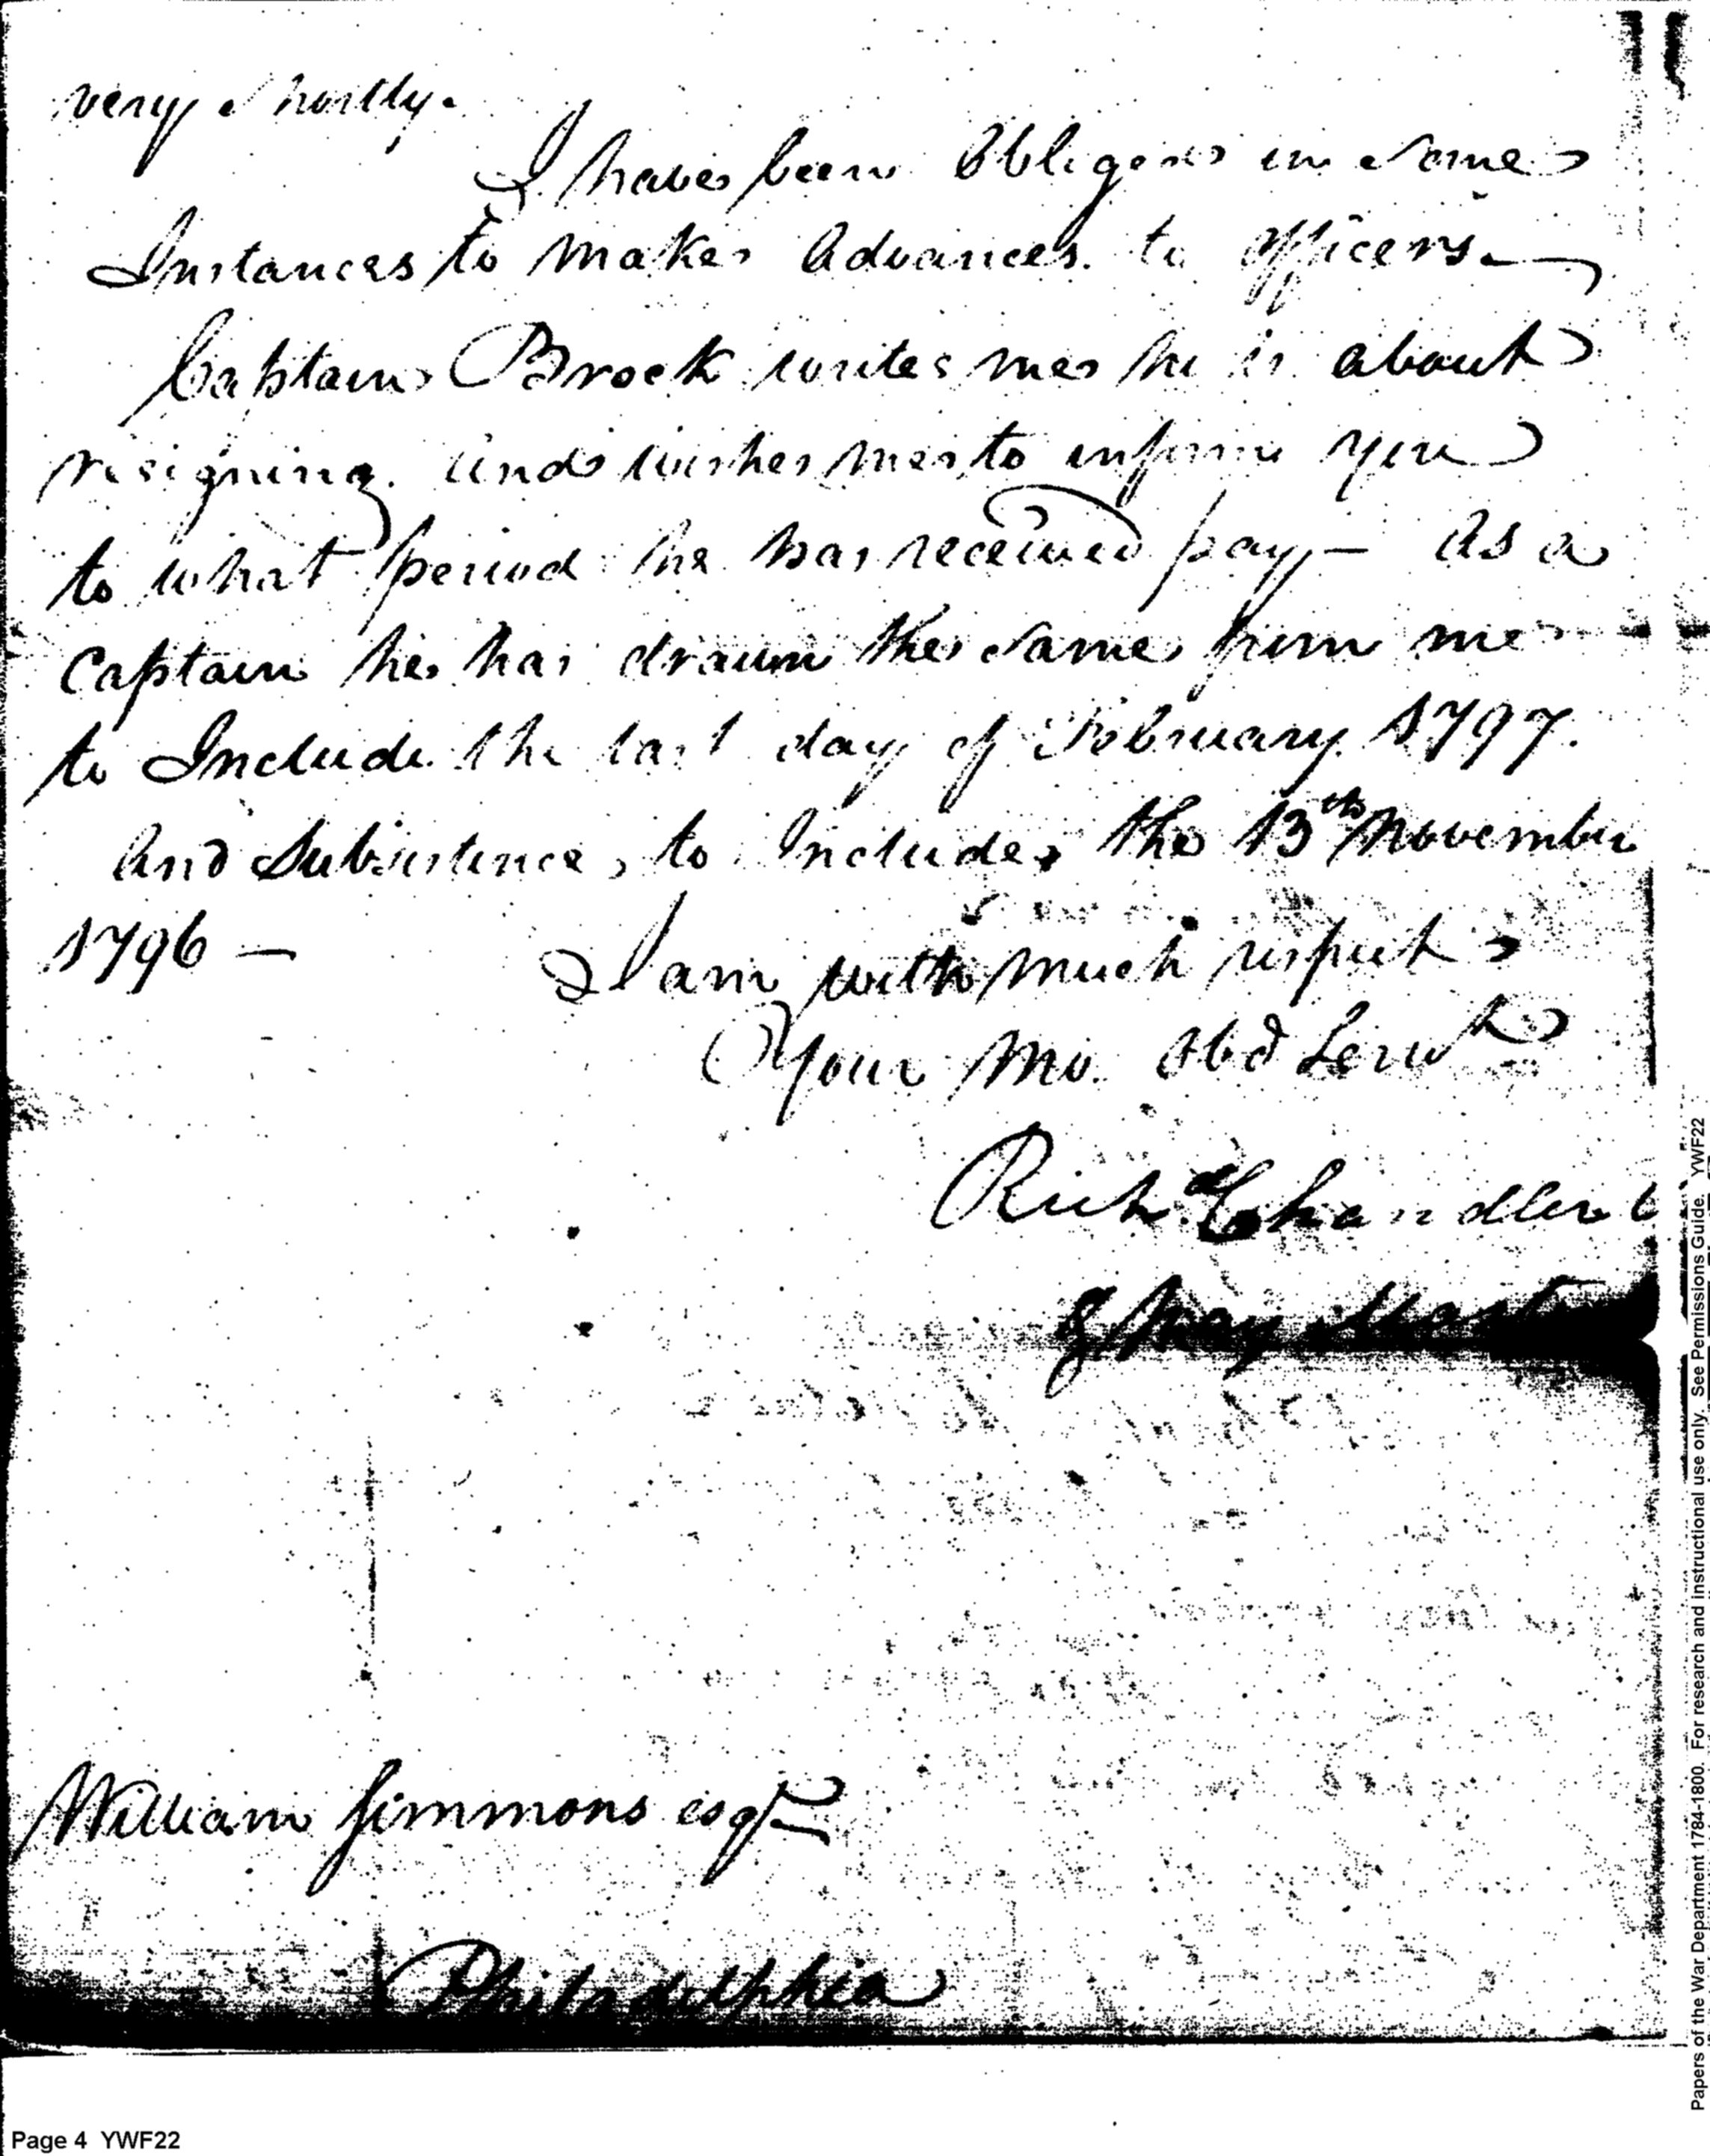 very shortly.
I have been Obliged in some
Instances to make Advances to officers.
Captain Brock writes me he is about
resigning. and wishes me to inform you
to what period he has received pay — As a
Captain he has drawn the same from me
to Include the last day of February 1797.
And Subsistence, to Include, the 13th November
1796 —
I am with much respect
Your Mo. Obd Servt
Richd Chandler
Pay Mast
William Simmons esqr
Philadelphia
Page 4 YWF22
Papers of the War Department 1784-1800. For research and instructional use only. See Permissions Guide. YWF22